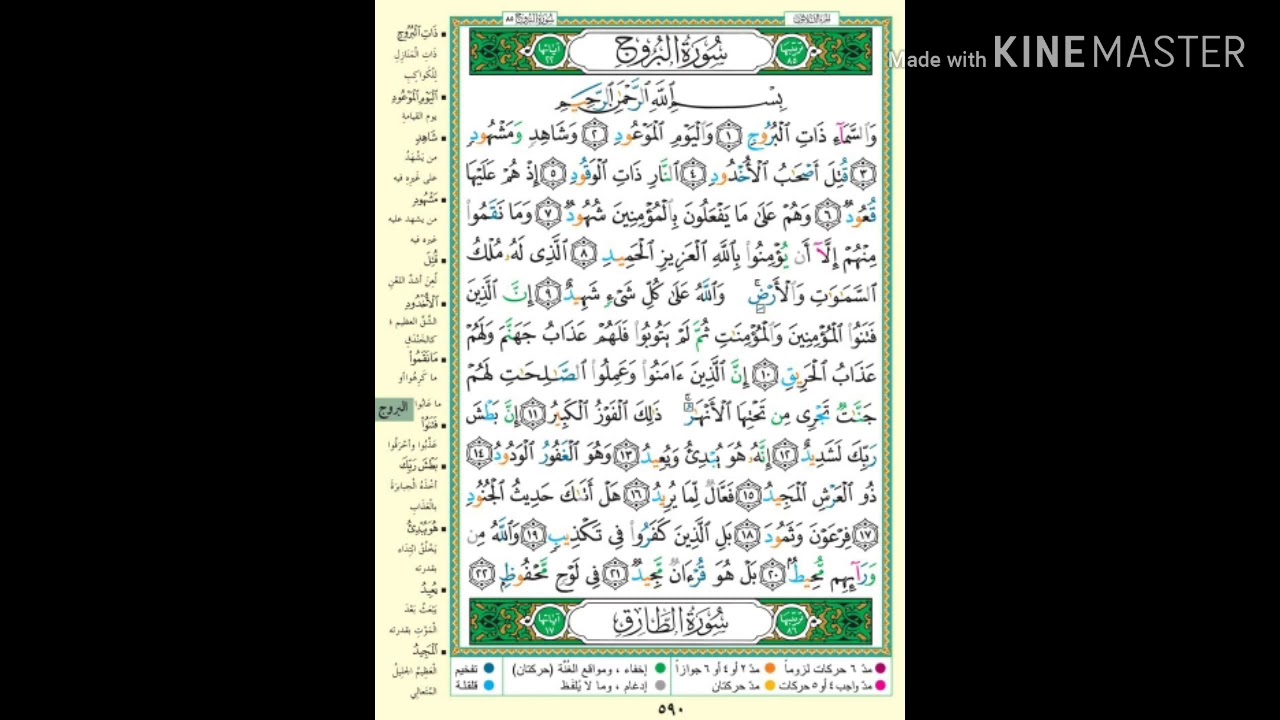 Made with KINEMASTER
سُورَةُ البُرُوجِ ٨٥
الجزء الثلاثون
ترتيبها ٨٥
سُورَةُ البُرُوجِ
آياتها ٢٢
بِسْمِ ٱللَّهِ ٱلرَّحْمَٰنِ ٱلرَّحِيمِ
وَٱلسَّمَآءِ ذَاتِ ٱلْبُرُوجِ ١ وَٱلْيَوْمِ ٱلْمَوْعُودِ ٢ وَشَاهِدٍ وَمَشْهُودٍ
٣ قُتِلَ أَصْحَٰبُ ٱلْأُخْدُودِ ٤ ٱلنَّارِ ذَاتِ ٱلْوَقُودِ ٥ إِذْ هُمْ عَلَيْهَا
قُعُودٌ ٦ وَهُمْ عَلَىٰ مَا يَفْعَلُونَ بِٱلْمُؤْمِنِينَ شُهُودٌ ٧ وَمَا نَقَمُوا۟
مِنْهُمْ إِلَّآ أَن يُؤْمِنُوا۟ بِٱللَّهِ ٱلْعَزِيزِ ٱلْحَمِيدِ ٨ ٱلَّذِى لَهُۥ مُلْكُ
ٱلسَّمَٰوَٰتِ وَٱلْأَرْضِ ۚ وَٱللَّهُ عَلَىٰ كُلِّ شَىْءٍ شَهِيدٌ ٩ إِنَّ ٱلَّذِينَ
فَتَنُوا۟ ٱلْمُؤْمِنِينَ وَٱلْمُؤْمِنَٰتِ ثُمَّ لَمْ يَتُوبُوا۟ فَلَهُمْ عَذَابُ جَهَنَّمَ وَلَهُمْ
عَذَابُ ٱلْحَرِيقِ ١٠ إِنَّ ٱلَّذِينَ ءَامَنُوا۟ وَعَمِلُوا۟ ٱلصَّٰلِحَٰتِ لَهُمْ
جَنَّٰتٌ تَجْرِى مِن تَحْتِهَا ٱلْأَنْهَٰرُ ۚ ذَٰلِكَ ٱلْفَوْزُ ٱلْكَبِيرُ ١١ إِنَّ بَطْشَ
رَبِّكَ لَشَدِيدٌ ١٢ إِنَّهُۥ هُوَ يُبْدِئُ وَيُعِيدُ ١٣ وَهُوَ ٱلْغَفُورُ ٱلْوَدُودُ ١٤
ذُو ٱلْعَرْشِ ٱلْمَجِيدُ ١٥ فَعَّالٌ لِّمَا يُرِيدُ ١٦ هَلْ أَتَىٰكَ حَدِيثُ ٱلْجُنُودِ
١٧ فِرْعَوْنَ وَثَمُودَ ١٨ بَلِ ٱلَّذِينَ كَفَرُوا۟ فِى تَكْذِيبٍ ١٩ وَٱللَّهُ مِن
وَرَآئِهِم مُّحِيطٌ ٢٠ بَلْ هُوَ قُرْءَانٌ مَّجِيدٌ ٢١ فِى لَوْحٍ مَّحْفُوظٍ ٢٢
ترتيبها ٨٦
سُورَةُ الطَّارِقِ
آياتها ١٧
ذَاتِ الْبُرُوجِ
ذَاتِ المَنَازِلِ
لِلْكَواكِبِ
الْيَوْمِ الْمَوْعُودِ
يوم القيامةِ
شَاهِدٍ
من يَشْهَدُ
على غَيرِهِ فيه
مَشْهُودٍ
من يشهد عليه
غيره فيه
قُتِلَ
لُعِنَ أشدَّ اللعْنِ
الْأُخْدُودِ
الشَّقِّ العظيم ؛
كالخَنْدَقِ
مَا نَقَمُوا
ما كَرِهُوا أو
ما عَابُوا
البروج
فَتَنُوا
عَذَّبُوا وأحرَقُوا
بَطْشَ رَبِّكَ
أخْذَهُ الجبابِرَةَ
بالعَذَابِ
هُوَ يُبْدِئُ
يَخْلُقُ ابْتِدَاء
بقدرته
يُعِيدُ
يَبْعَثُ بَعْدَ
المَوْتِ بقدرته
الْمَجِيدُ
العَظِيمُ الجليلُ
المُتَعالي
مدّ ٦ حركات لزوماً
مدّ ٢ أو ٤ أو ٦ جوازاً
إخفاء ، ومواقع الغُنَّة (حركتان)
تفخيم
مدّ واجب ٤ أو ٥ حركات
مدّ حركتان
إدغام ، وما لا يُلفَظ
قلقلة
٥٩٠